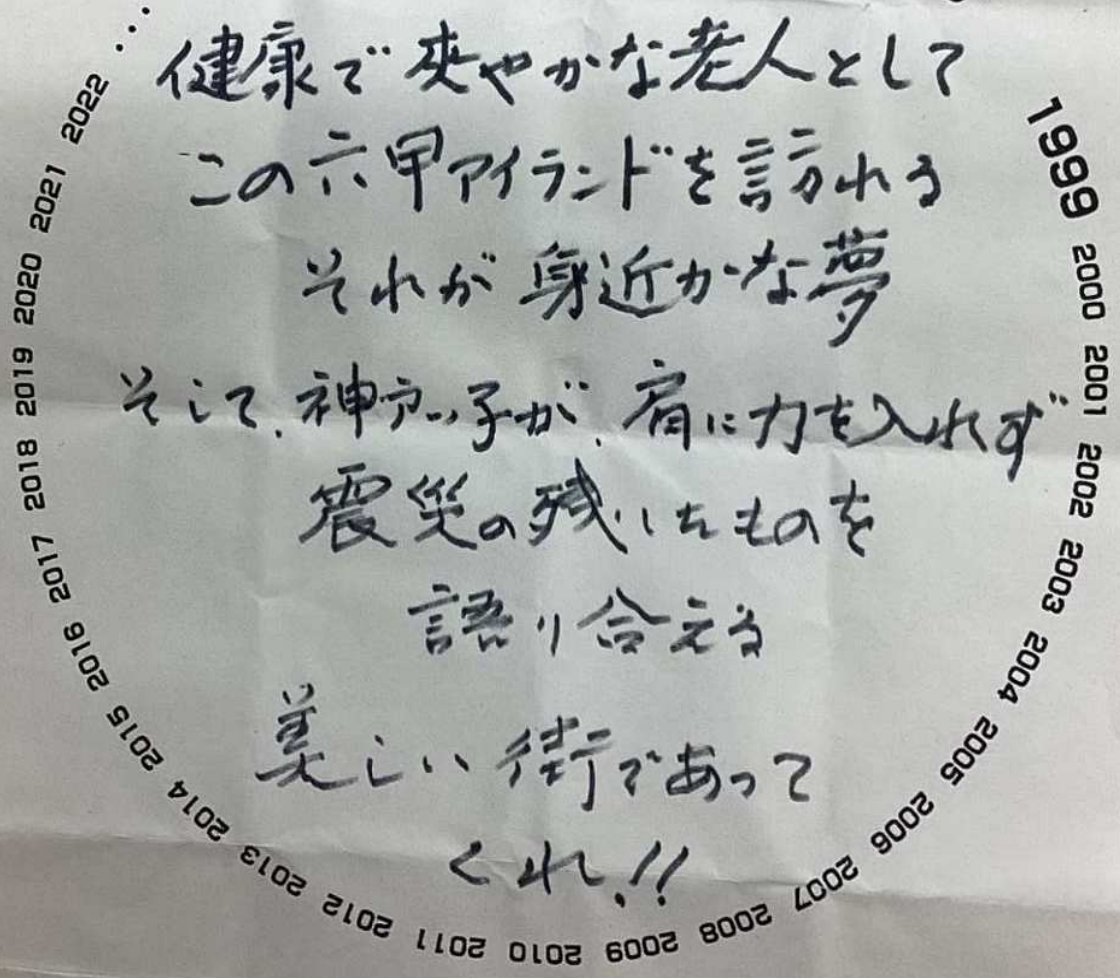 健康で爽やかな老人として
この六甲アイランドを訪れる
それが身近かな夢
そして、神戸っ子が、肩に力を入れず
震災の残したものを
語り合える
美しい街であって
くれ!!
1999 2000 2001 2002 2003 2004 2005 2006 2007 2008 2009 2010 2011 2012 2013 2014 2015 2016 2017 2018 2019 2020 2021 2022 ...